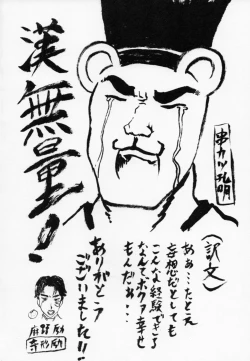 漢無量！
串カツ孔明
(訳文)
ああ…たとえ
妄想だとしても
こんな経験できる
なんて、ボクァ幸せ
もんだぁ…
ありがとう
ございました!!